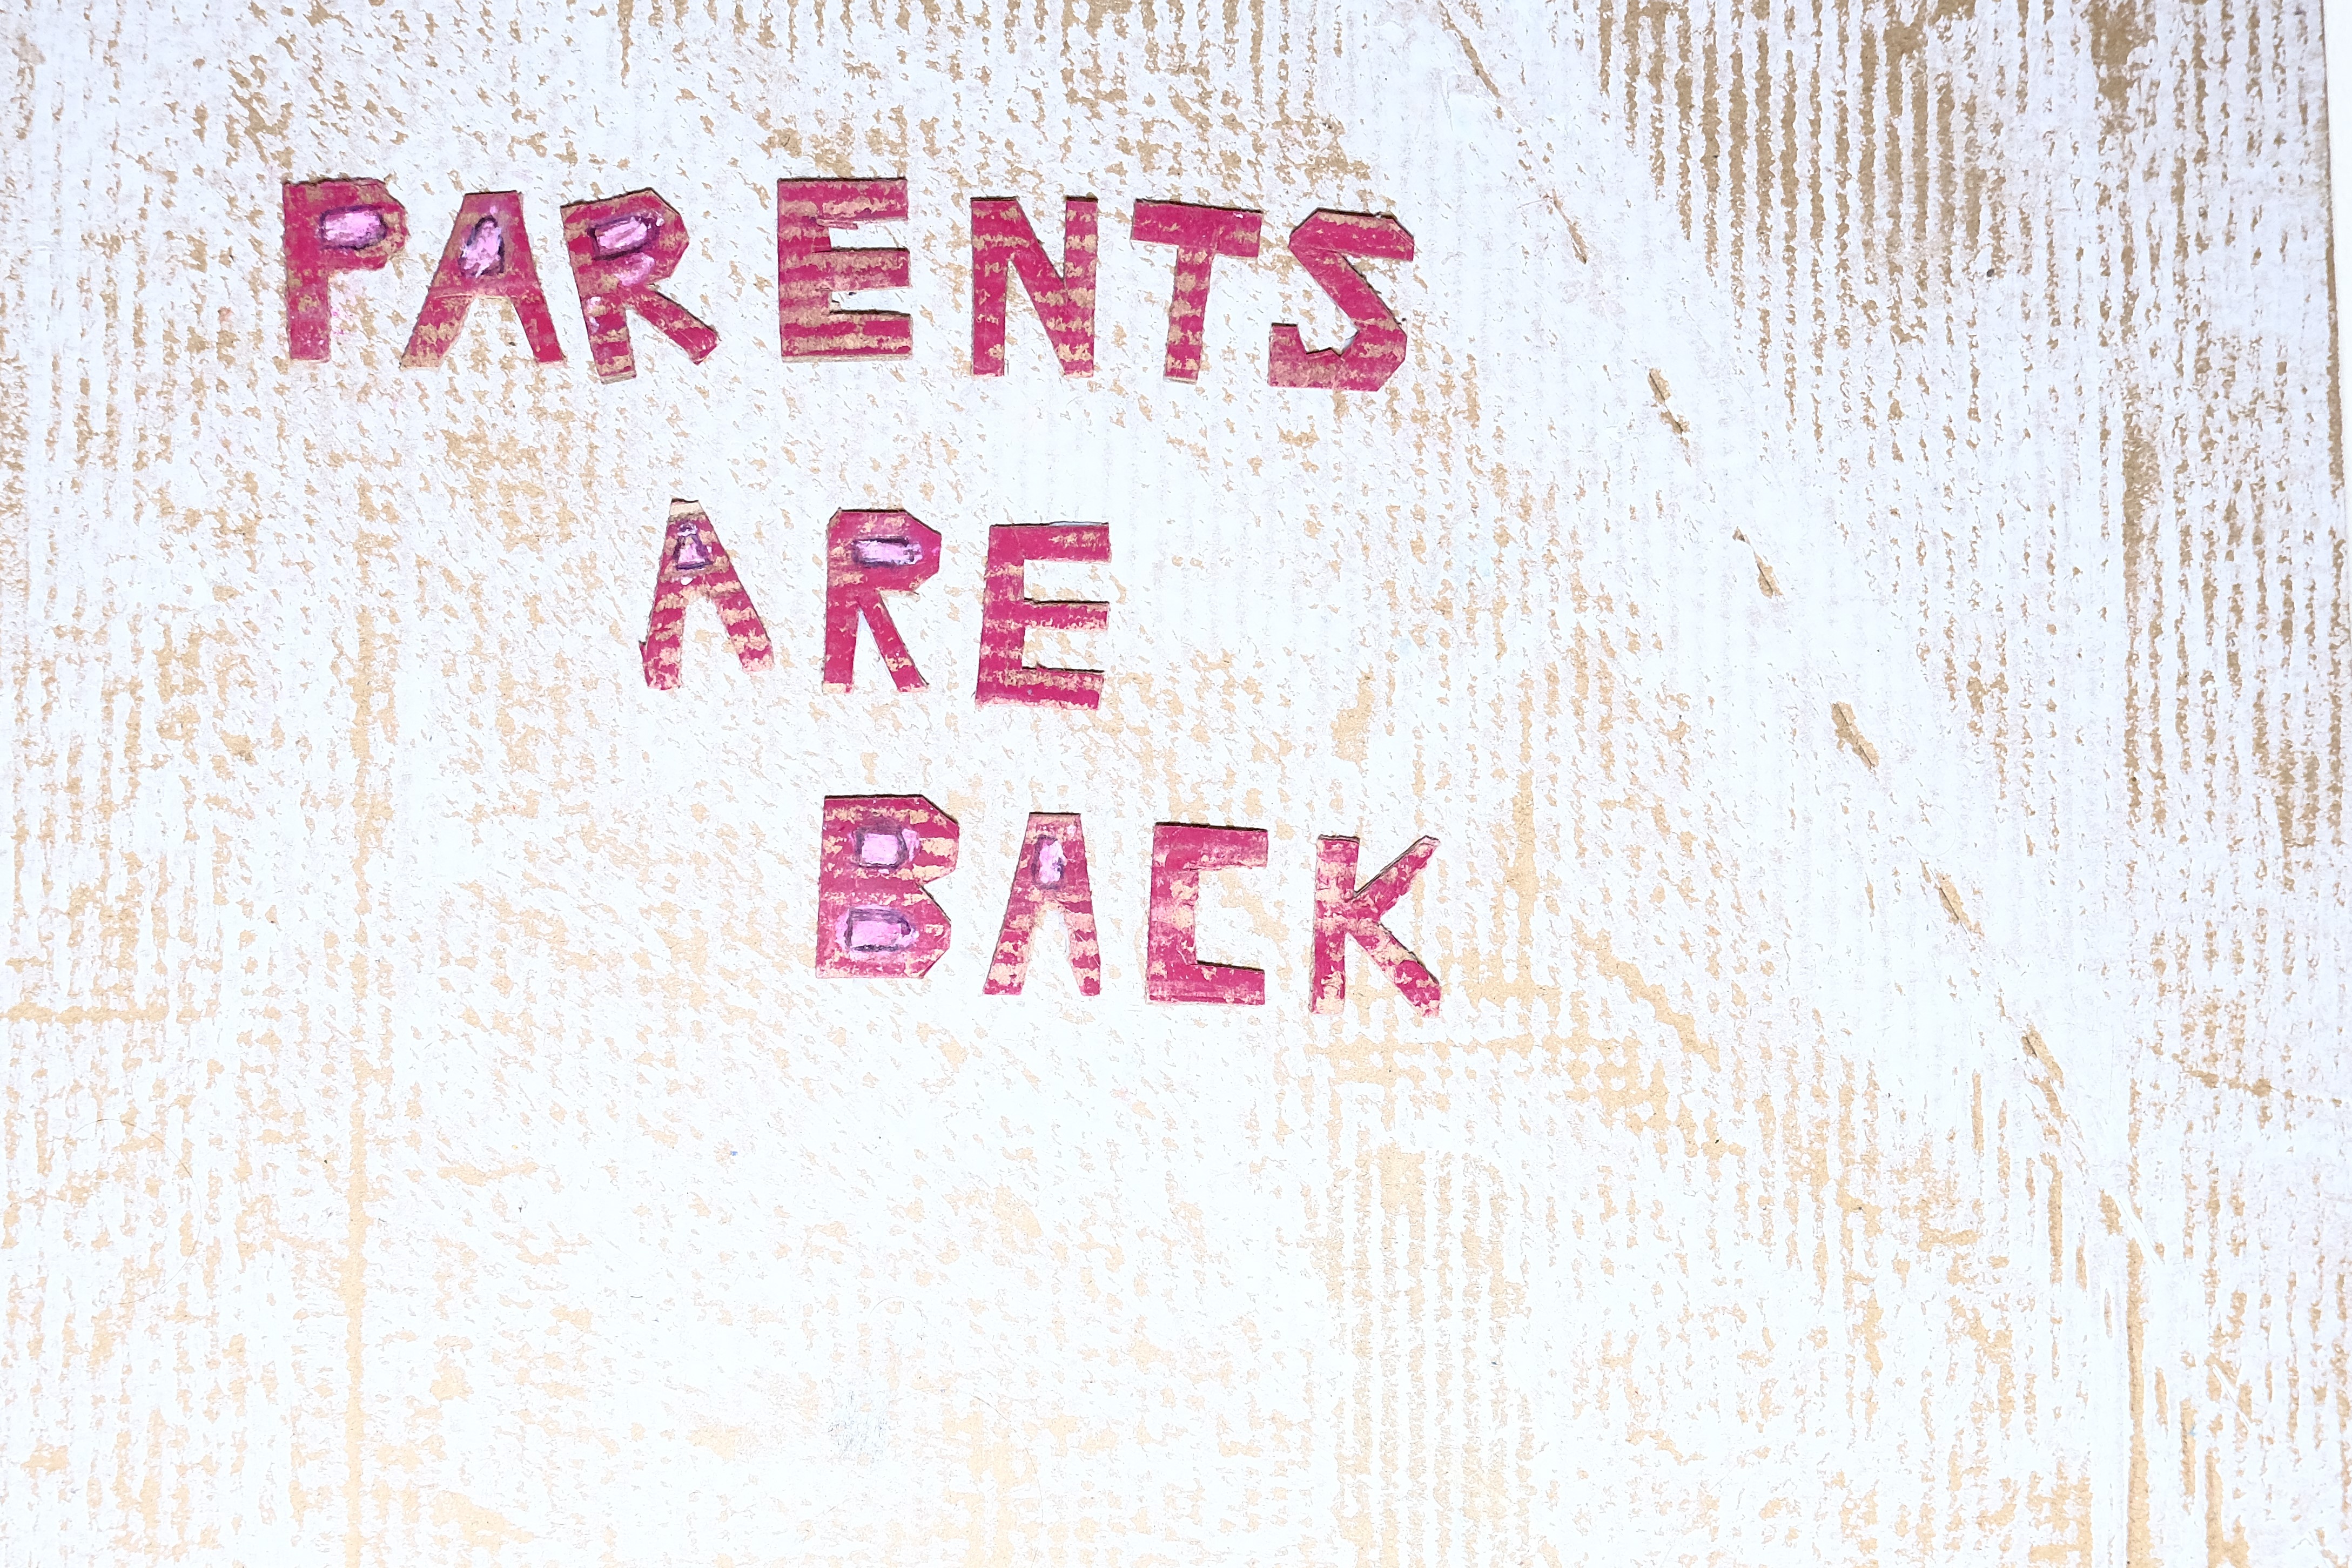 PARENTS
ARE
BACK